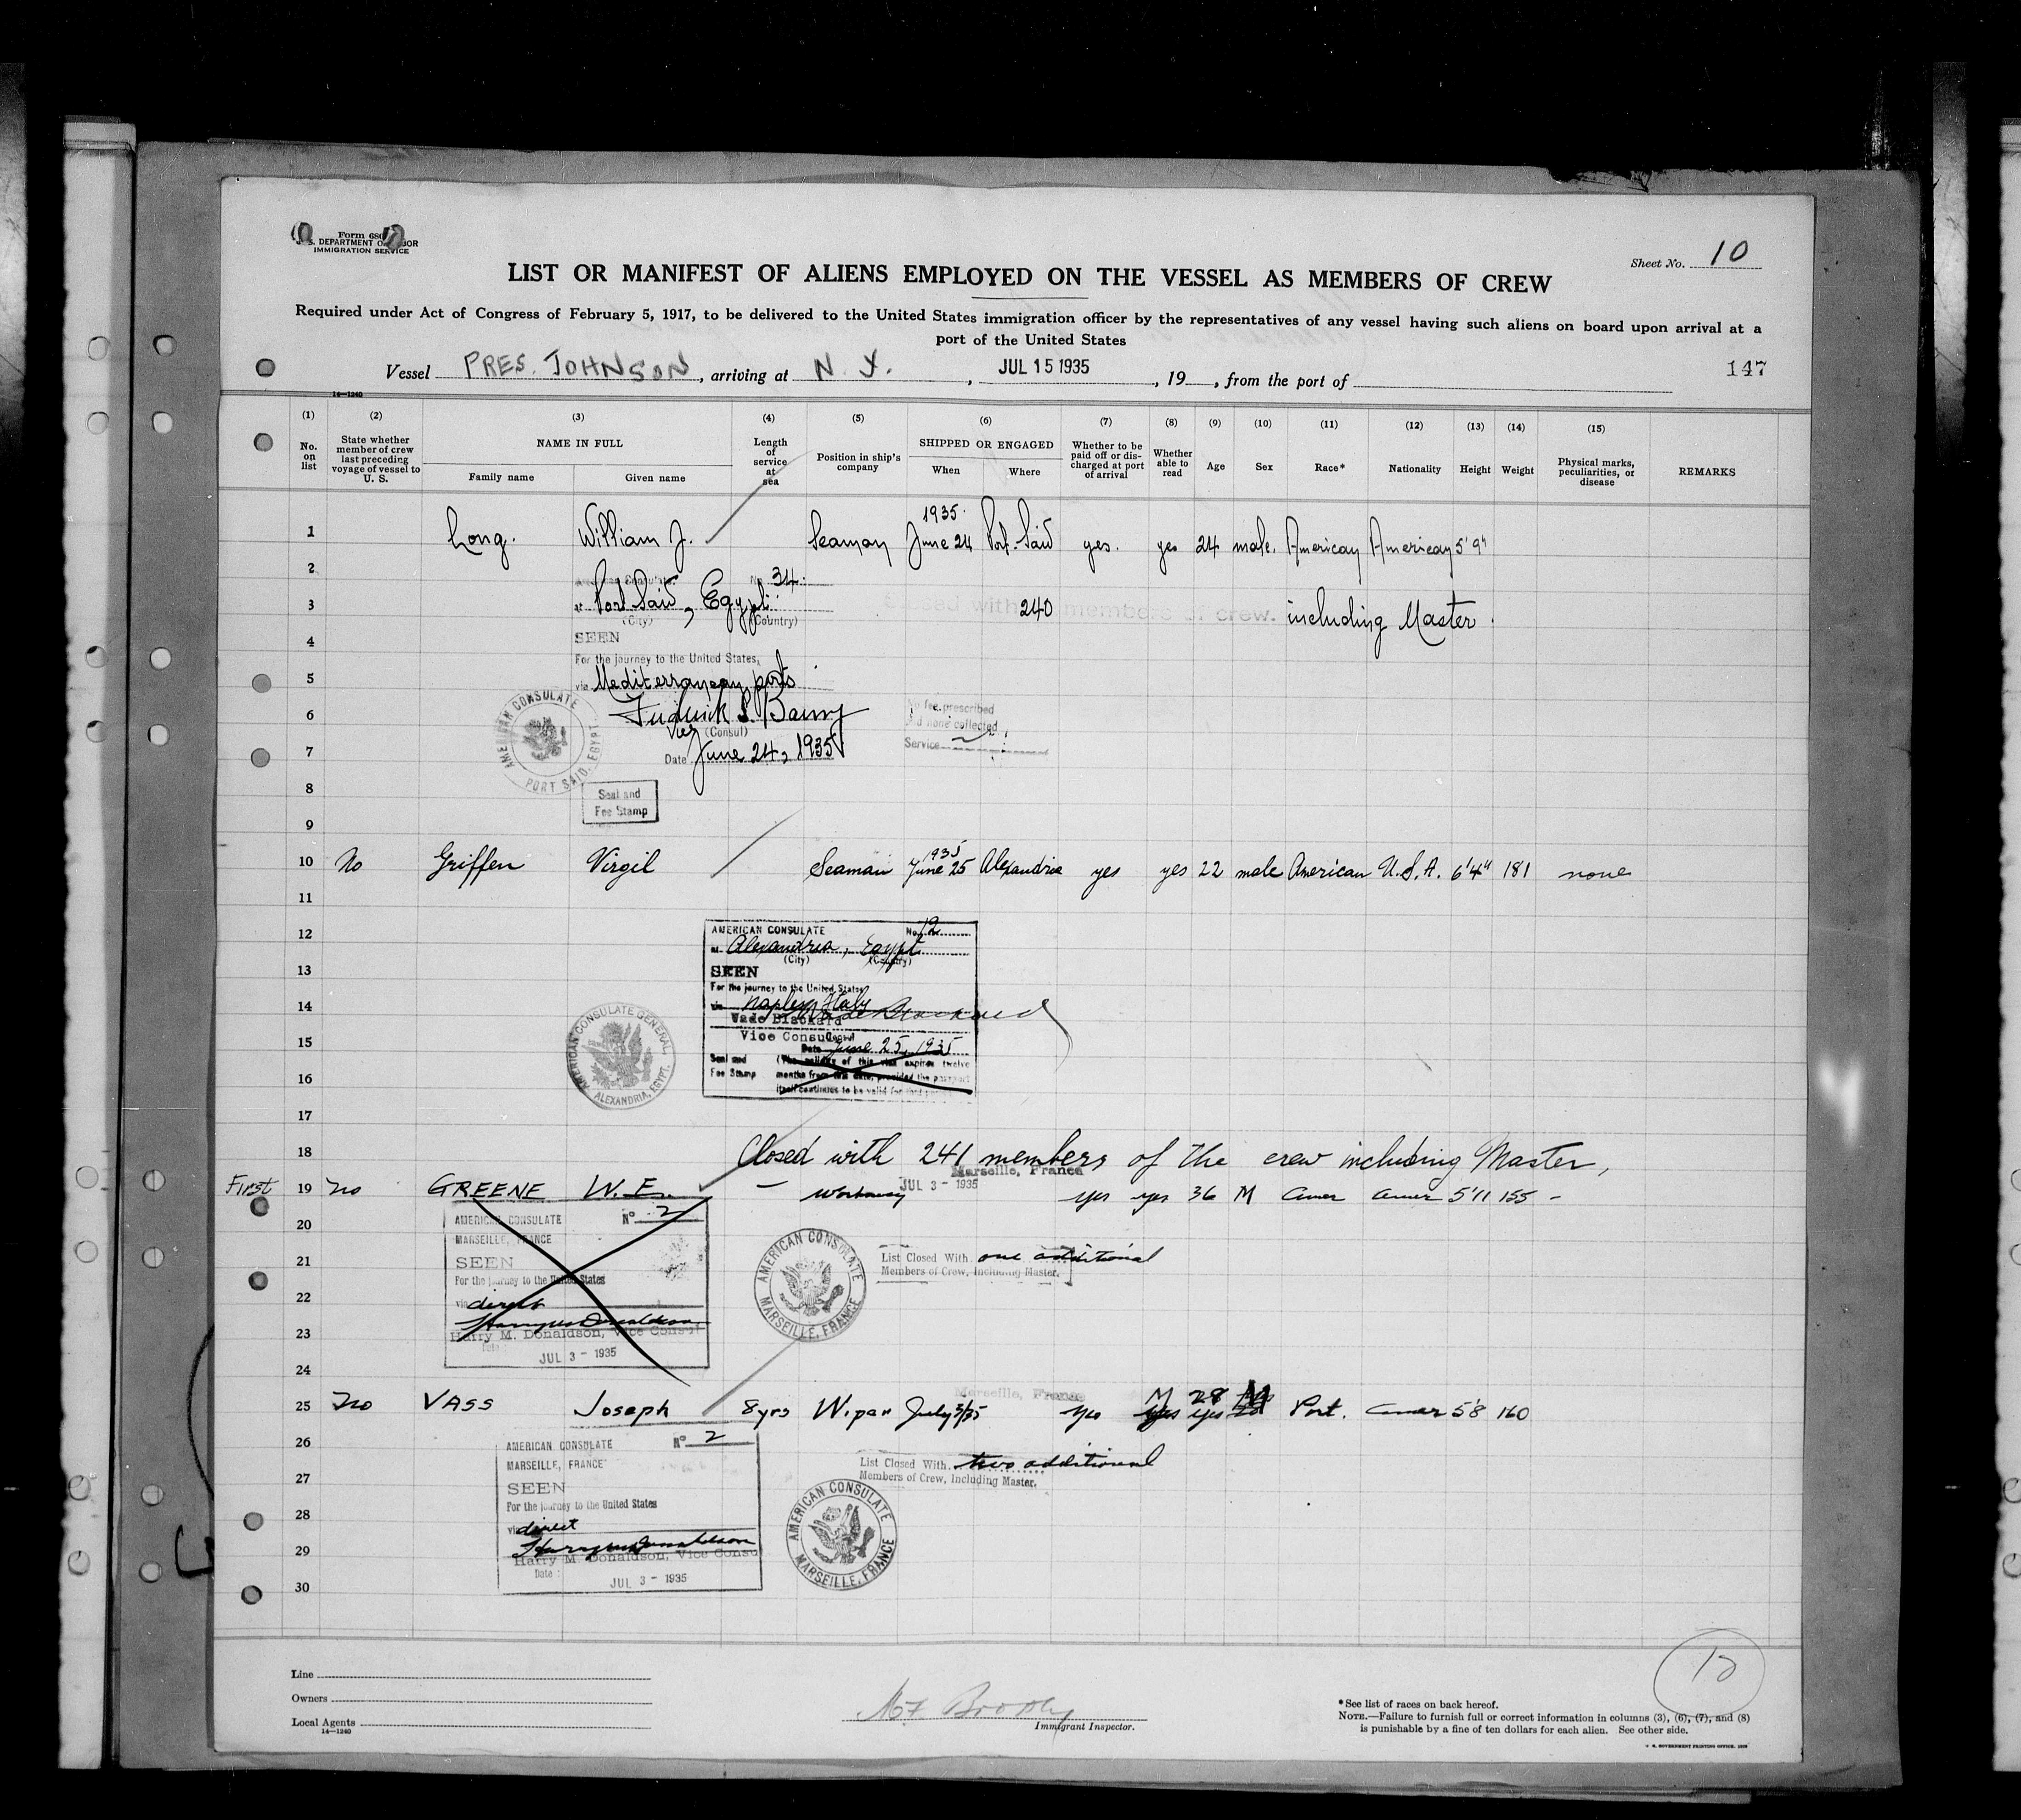 Form 680
U. S. DEPARTMENT OF LABOR
IMMIGRATION SERVICE
Sheet No. 10
LIST OR MANIFEST OF ALIENS EMPLOYED ON THE VESSEL AS MEMBERS OF CREW
Required under Act of Congress of February 5, 1917, to be delivered to the United States immigration officer by the representatives of any vessel having such aliens on board upon arrival at a
port of the United States
Vessel PRES. JOHNSON, arriving at N. Y., JUL 15 1935, 19, from the port of
147
14—1240
(1) (2) (3) (4) (5) (6) (7) (8) (9) (10) (11) (12) (13) (14) (15)
No. on list
State whether member of crew last preceding voyage of vessel to U. S.
NAME IN FULL
Family name
Given name
Length of service at sea
Position in ship's company
SHIPPED OR ENGAGED
When
Where
Whether to be paid off or discharged at port of arrival
Whether able to read
Age
Sex
Race*
Nationality
Height
Weight
Physical marks, peculiarities, or disease
REMARKS
1 Long. William J. Seaman 1935 June 24 Port Said yes. yes 24 male. American American 5'9"
2
No. 34.
3 at Port Said, Egypt. Closed with 240 members of crew. including Master.
(City) (Country)
4 SEEN
For the journey to the United States,
5 via Mediterranean ports
AMERICAN CONSULATE
PORT SAID, EGYPT
6 Frederick L. Barry
Vice (Consul)
No fee prescribed
and none collected
Service
7 Date June 24, 1935
8 Seal and
Fee Stamp
9
10 No Griffen Virgil Seaman 1935 June 25 Alexandria yes yes 22 male American U.S.A. 6'4" 181 none
11
12 AMERICAN CONSULATE No. 12
at Alexandria, Egypt
(City) (Country)
13 SEEN
For the journey to the United States
14 via Naples, Italy
Wade Blackard
Vice Consul
15 Date June 25, 1935
Seal and
Fee Stamp
(The validity of this visa expires twelve
16 months from this date, provided the passport
itself continues to be valid for that period
AMERICAN CONSULATE GENERAL,
ALEXANDRIA, EGYPT.
17
18 Closed with 241 members of the crew including Master,
Marseille, France
JUL 3 - 1935
First 19 no GREENE W. E. — Workaway yes yes 36 M Amer Amer 5'11 155 -
20 AMERICAN CONSULATE No 2
MARSEILLE, FRANCE
21 SEEN
For the journey to the United States
22 via direct
23 Harry M. Donaldson, Vice Consul
Date: JUL 3 - 1935
AMERICAN CONSULATE
MARSEILLE, FRANCE
List Closed With one additional
Members of Crew, Including Master.
24
Marseille, France
M 28 M
25 no VASS Joseph 8 yrs Wiper July 3/35 yes yes yes Port. Amer 5'8 160
26 AMERICAN CONSULATE No 2
MARSEILLE, FRANCE
27 SEEN
For the journey to the United States
28 via direct
29 Harry M. Donaldson, Vice Consu
Date: JUL 3 - 1935
30
List Closed With two additional
Members of Crew, Including Master.
AMERICAN CONSULATE
MARSEILLE, FRANCE
10
Line
Owners
Local Agents
14—1240
Immigrant Inspector.
*See list of races on back hereof.
NOTE.—Failure to furnish full or correct information in columns (3), (6), (7), and (8)
is punishable by a fine of ten dollars for each alien. See other side.